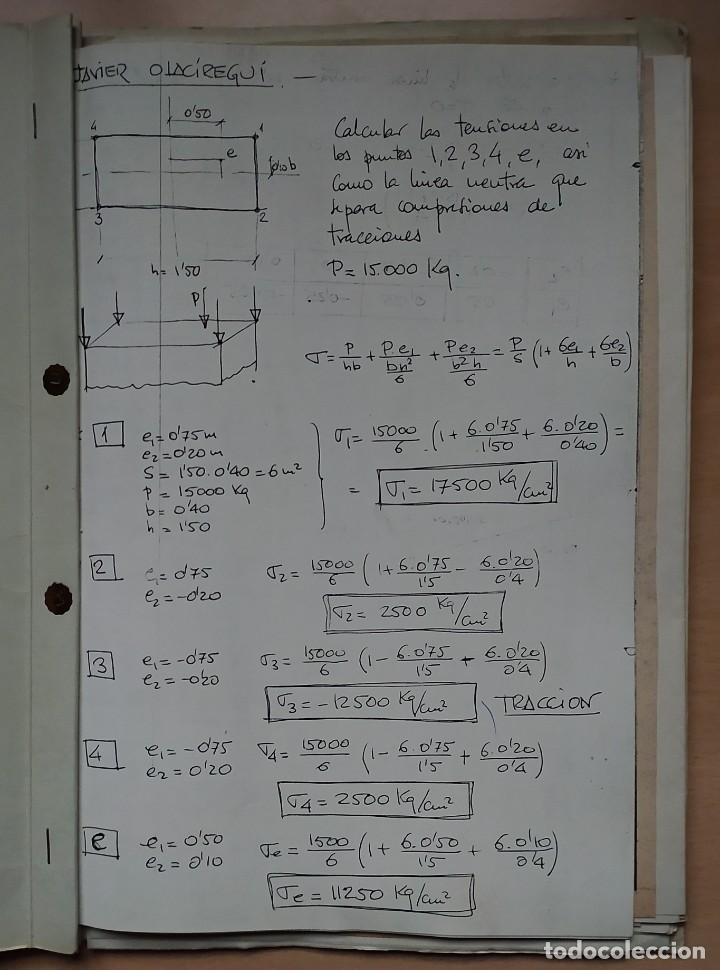 JAVIER OLACIREGUI. —
0'50
4
1
e
0'10b
3
2
h = 1'50
P
Calcular las tensiones en
los puntos 1, 2, 3, 4, e, así
como la linea neutra que
separa compresiones de
tracciones
P = 15.000 Kg.
σ = P/hb + P.e₁/(bh²/6) + Pe₂/(b²h/6) = P/S (1 + 6e₁/h + 6e₂/b)
1
e₁ = 0'75 m
e₂ = 0'20 m
S = 1'50 . 0'40 = 6 m²
P = 15000 Kg
b = 0'40
h = 1'50
σ₁ = 15000/6 . (1 + 6.0'75/1'50 + 6.0'20/0'40) =
= σ₁ = 17500 Kg/cm²
2
e₁ = 0'75
e₂ = -0'20
σ₂ = 15000/6 (1 + 6.0'75/1'5 - 6.0'20/0'4)
σ₂ = 2500 Kg/cm²
3
e₁ = -0'75
e₂ = -0'20
σ₃ = 15000/6 (1 - 6.0'75/1'5 + 6.0'20/0'4)
σ₃ = -12500 Kg/cm²
TRACCION
4
e₁ = -0'75
e₂ = 0'20
σ₄ = 15000/6 (1 - 6.0'75/1'5 + 6.0'20/0'4)
σ₄ = 2500 Kg/cm²
e
e₁ = 0'50
e₂ = 0'10
σe = 1500/6 (1 + 6.0'50/1'5 + 6.0'10/0'4)
σe = 11250 Kg/cm²
todocoleccion